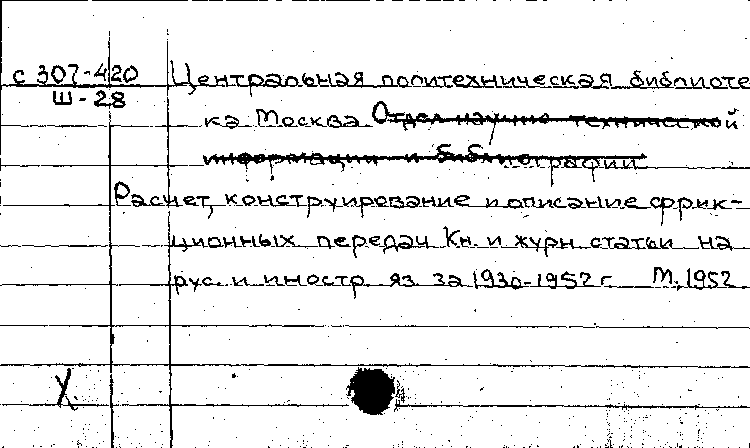 с 307-420 Центральная политехническая библиоте
Ш-28
ка Москва Отдел научно технической
информации и библиографии
Расчет, конструирование и описание фрик-
ционных передач Кн. и журн. статьи на
рус. и иностр. яз. за 1930-1952 г. М., 1952
X.